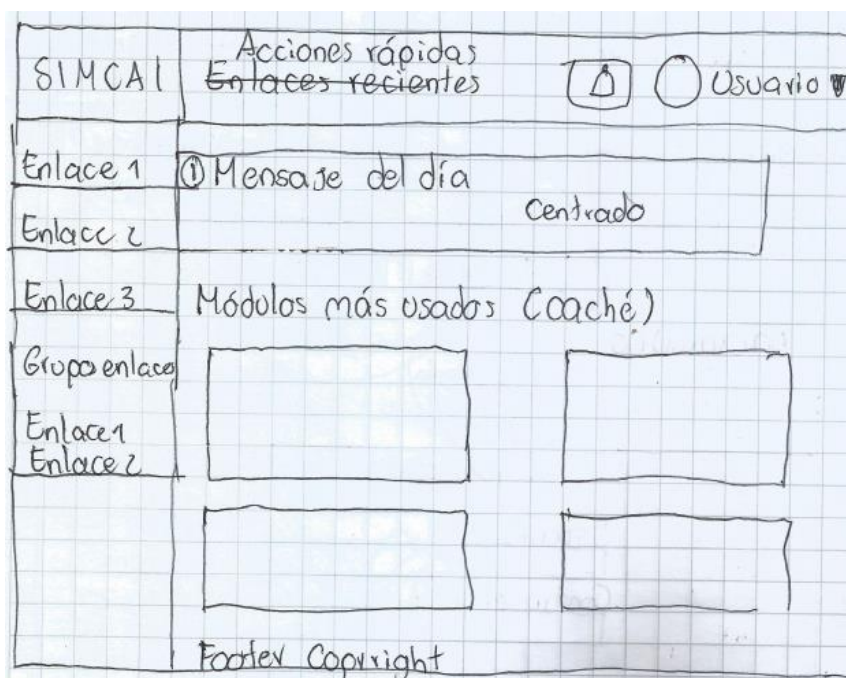 SIMCAI
Acciones rápidas
Enlaces recientes
Usuario
Enlace 1
Enlace 2
Enlace 3
Grupo enlace
Enlace 1
Enlace 2
① Mensaje del día
Centrado
Módulos más usados (caché)
Footer Copyright